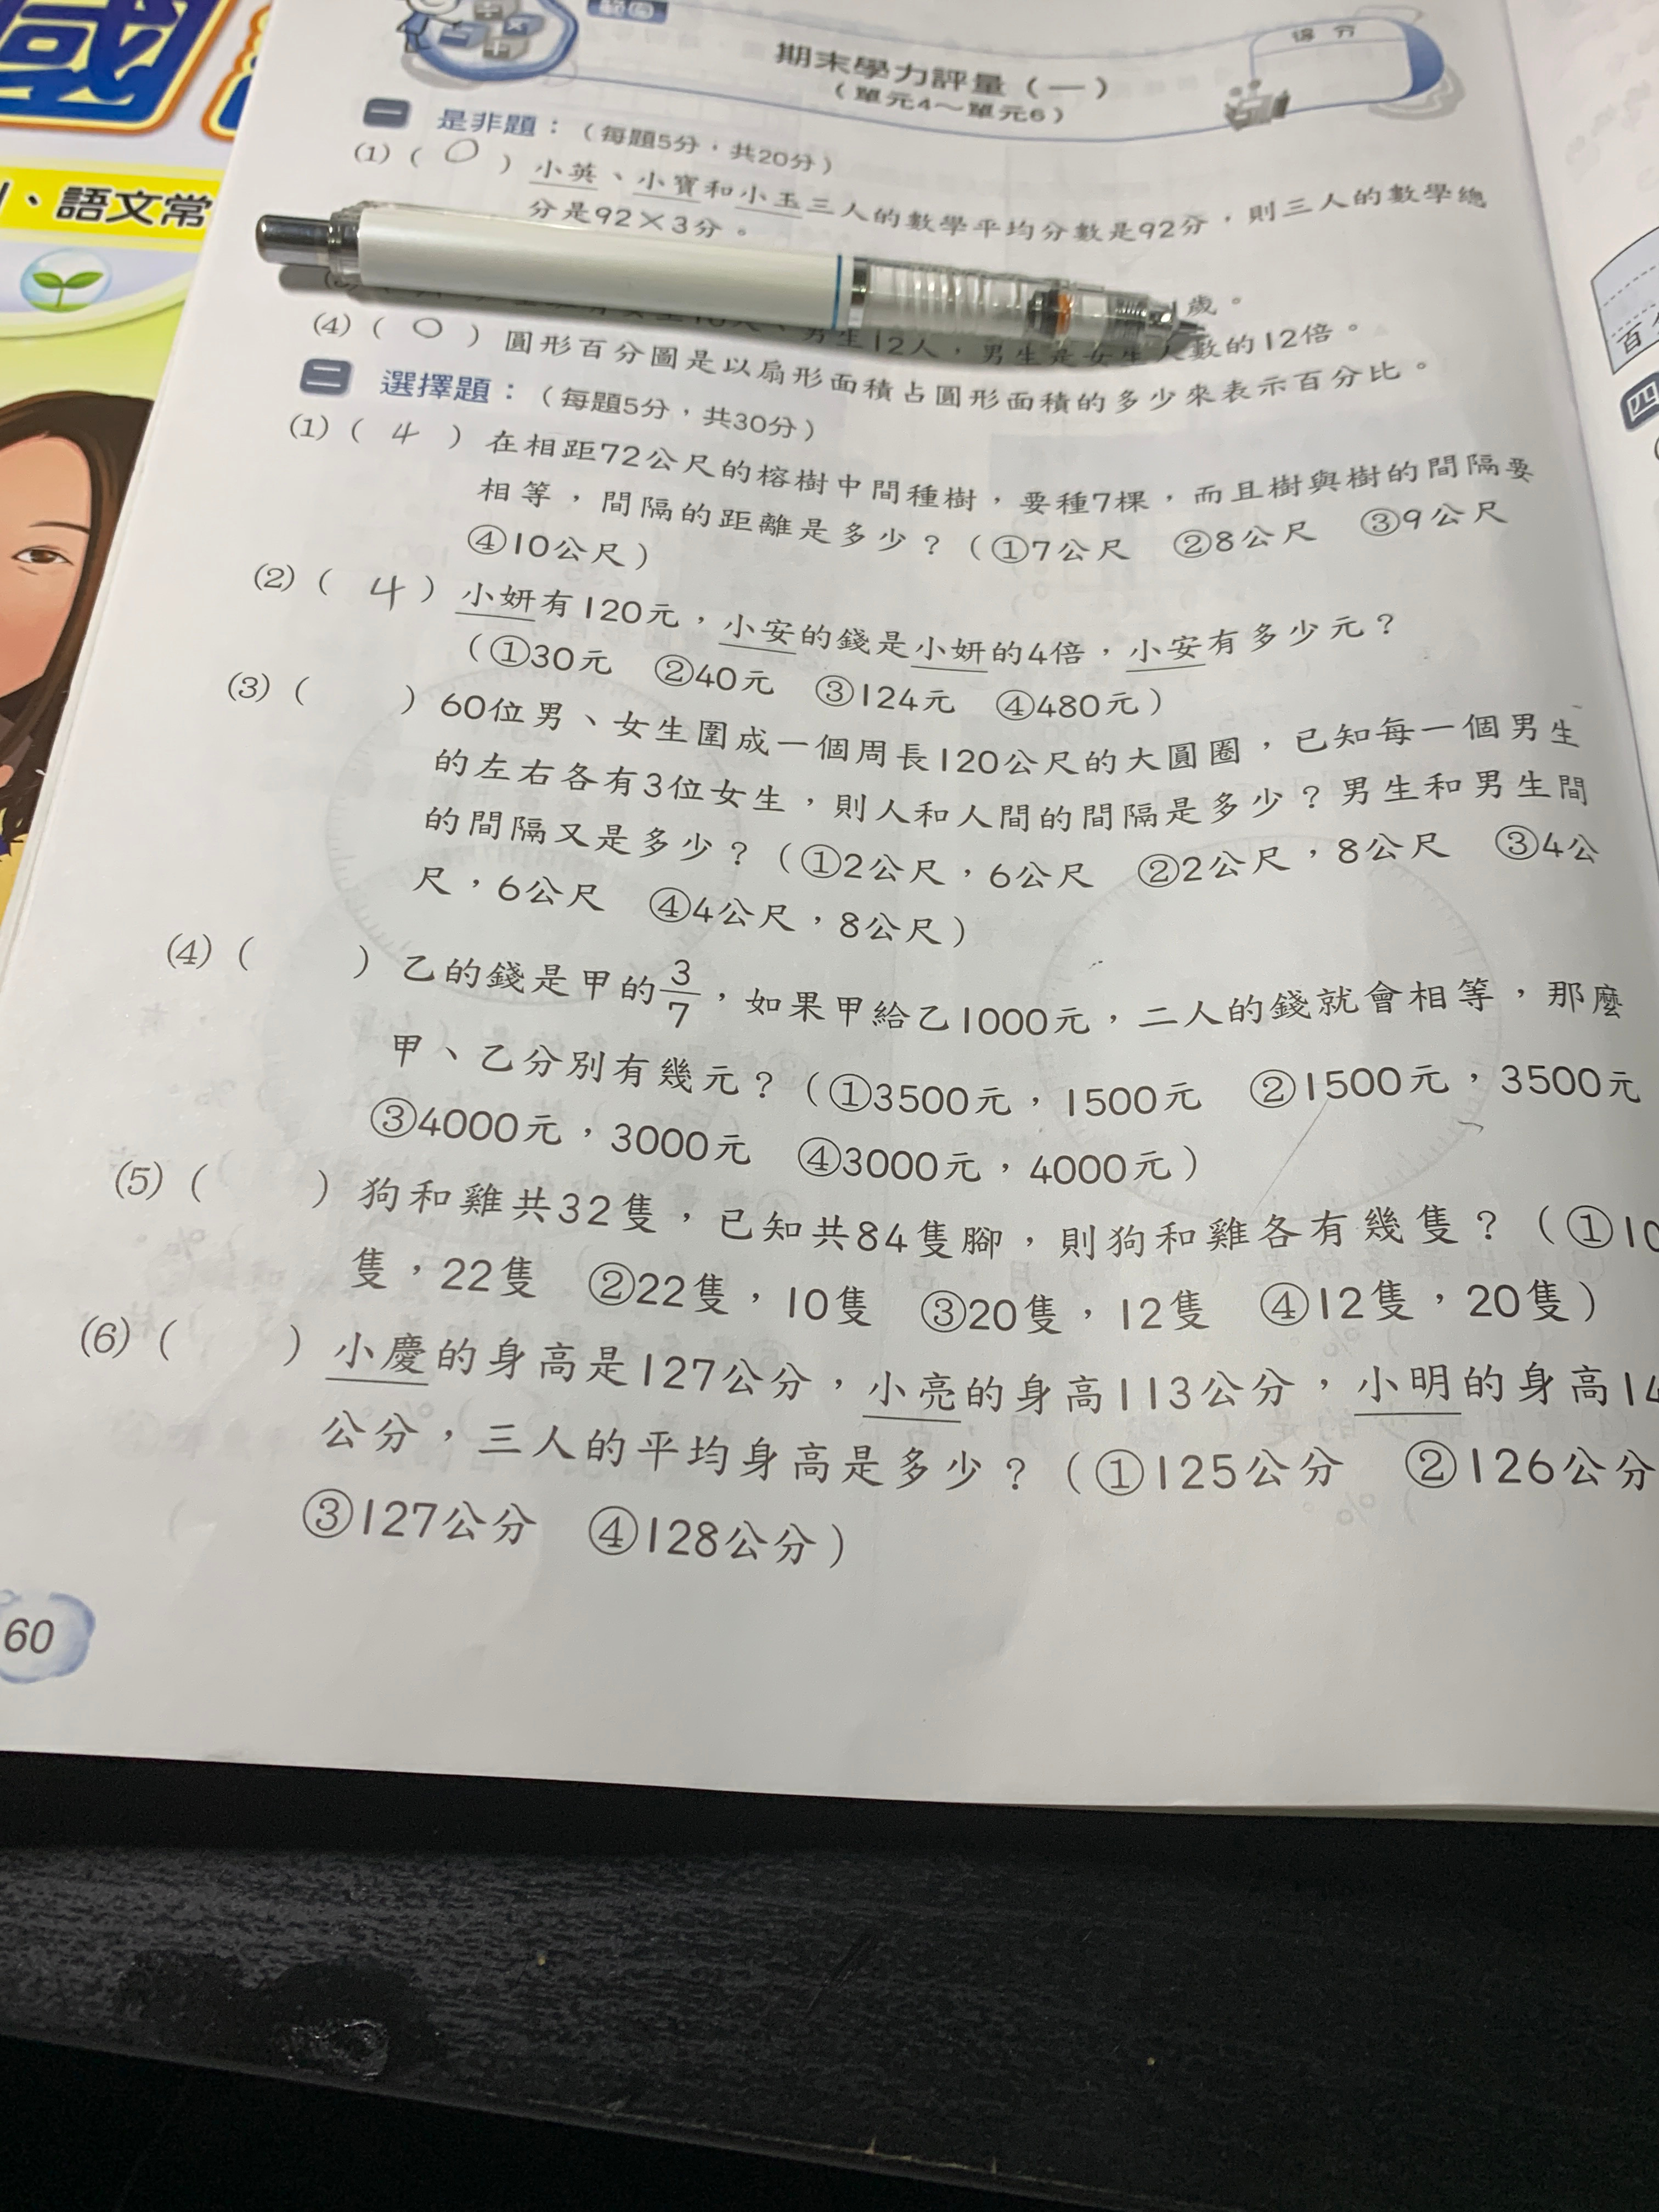 國
、語文常
範圍
期末學力評量（一）
（單元4～單元6）
得分
一 是非題：（每題5分，共20分）
(1)（ O ）小英、小寶和小玉三人的數學平均分數是92分，則三人的數學總
分是92×3分。
歲。
男生12人，男生是女生人數的12倍。
(4)（ O ）圓形百分圖是以扇形面積占圓形面積的多少來表示百分比。
二 選擇題：（每題5分，共30分）
(1)（ 4 ）在相距72公尺的榕樹中間種樹，要種7棵，而且樹與樹的間隔要
相等，間隔的距離是多少？（①7公尺 ②8公尺 ③9公尺
④10公尺）
(2)（ 4 ）小妍有120元，小安的錢是小妍的4倍，小安有多少元？
（①30元 ②40元 ③124元 ④480元）
(3)（ ）60位男、女生圍成一個周長120公尺的大圓圈，已知每一個男生
的左右各有3位女生，則人和人間的間隔是多少？男生和男生間
的間隔又是多少？（①2公尺，6公尺 ②2公尺，8公尺 ③4公
尺，6公尺 ④4公尺，8公尺）
(4)（ ）乙的錢是甲的3/7，如果甲給乙1000元，二人的錢就會相等，那麼
甲、乙分別有幾元？（①3500元，1500元 ②1500元，3500元
③4000元，3000元 ④3000元，4000元）
(5)（ ）狗和雞共32隻，已知共84隻腳，則狗和雞各有幾隻？（①10
隻，22隻 ②22隻，10隻 ③20隻，12隻 ④12隻，20隻）
(6)（ ）小慶的身高是127公分，小亮的身高113公分，小明的身高14
公分，三人的平均身高是多少？（①125公分 ②126公分
③127公分 ④128公分）
60
百
四